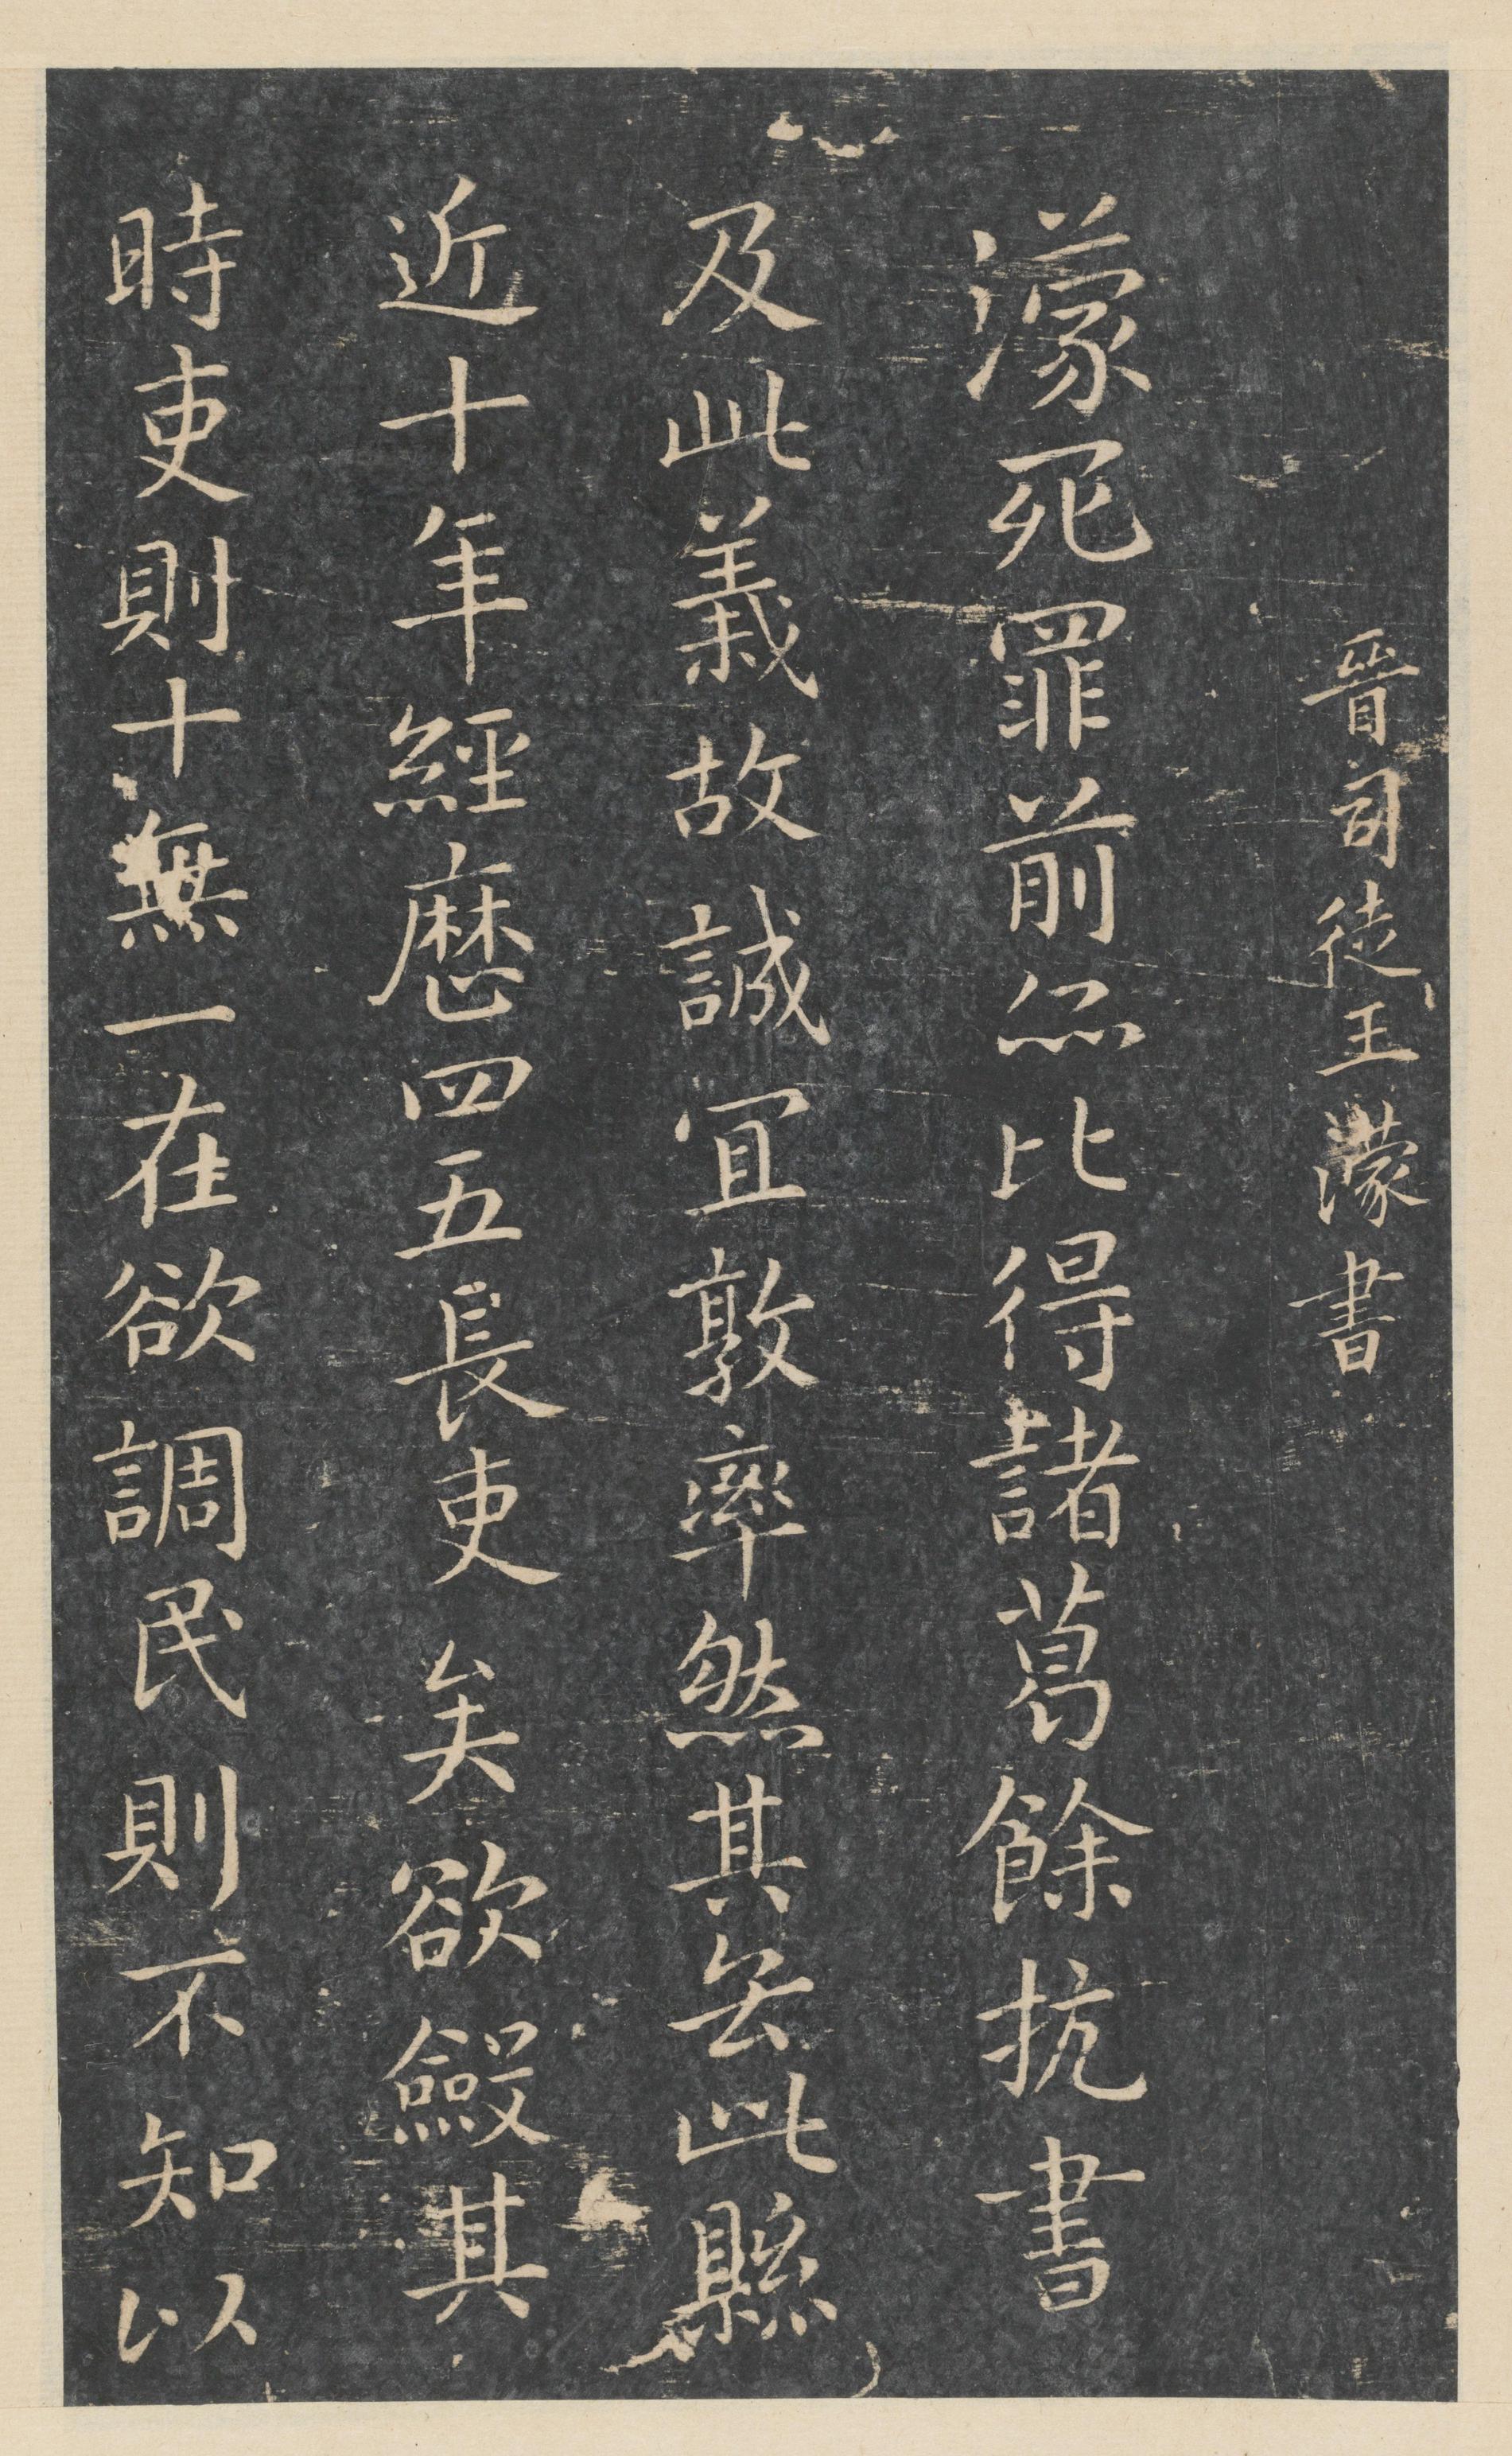 晉司徒王濛書
濛死罪前亦比得諸葛餘抗書
及此義故誠宜敦率然其去此縣
近十年經歷四五長吏矣欲斂其
時吏則十無一在欲調民則不知以